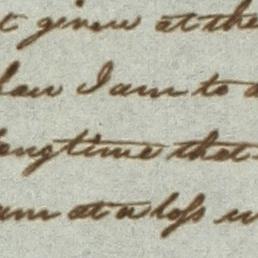 t given at the
law I am to a
longtime that
am at a loss